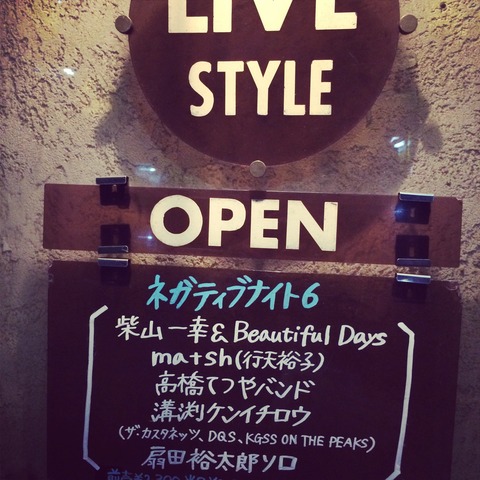 LIVE
STYLE
OPEN
ネガティブナイト6
柴山一幸& Beautiful Days
matsh(行天裕子)
高橋てつやバンド
溝渕ケンイチロウ
(ザ・カスタネッツ、DQS、KGSS ON THE PEAKS)
扇田裕太郎ソロ
前売¥2,300